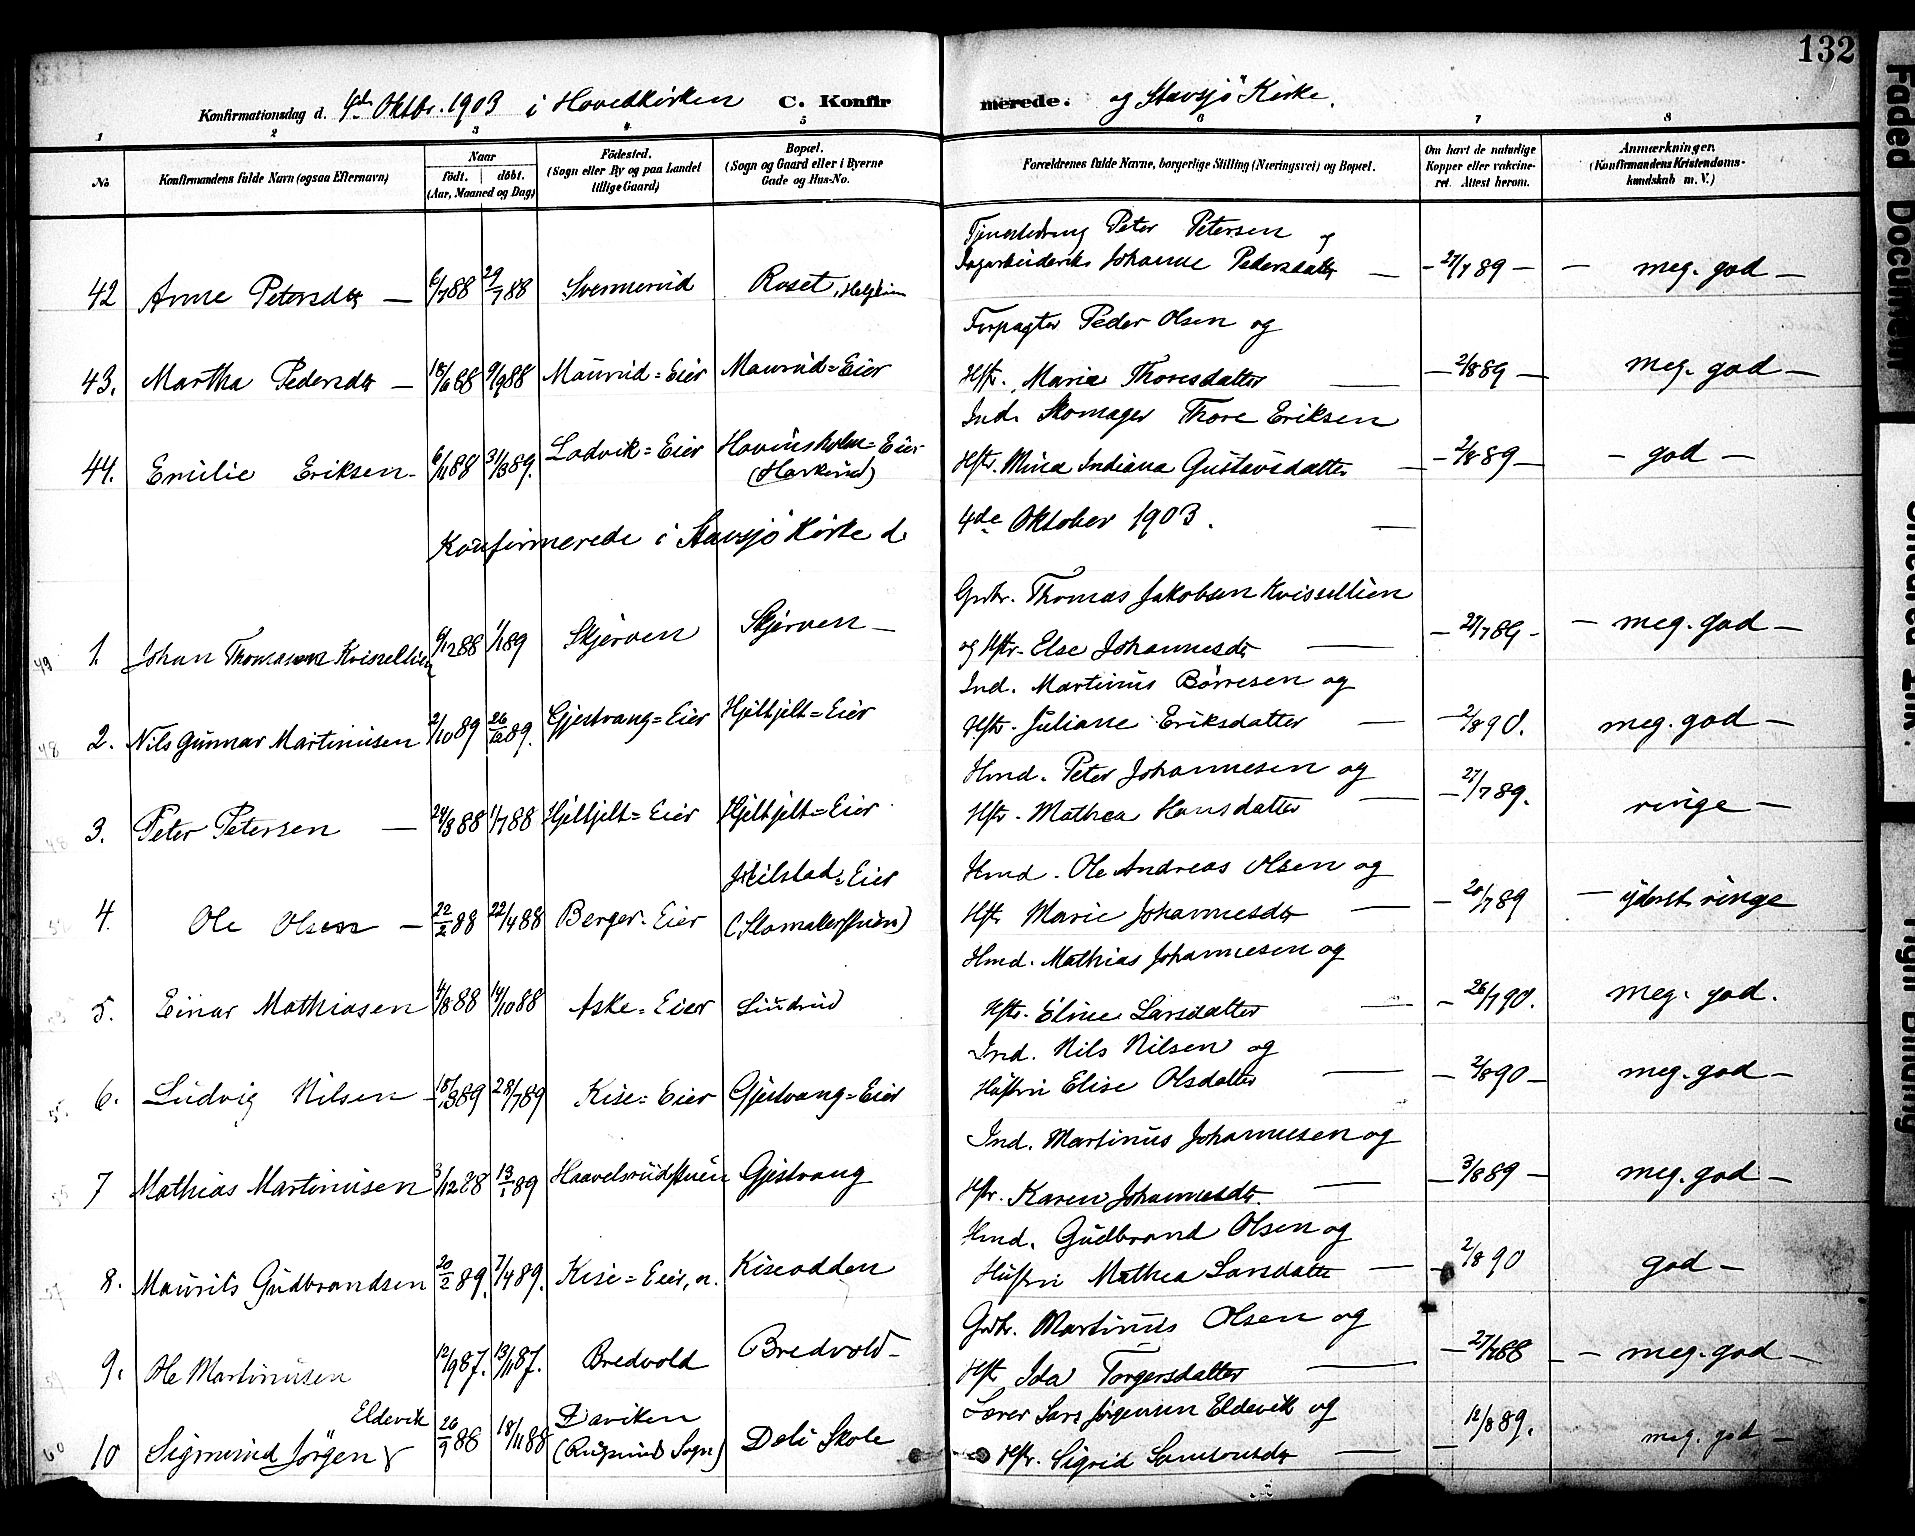 132
Konfirmationsdag d. 4de Oktbr. 1903 i Hovedkirken C. Konfirmerede. og Stavsjö Kirke.
1 2 3 4 5 6 7 8
No
Konfirmandens fulde Navn (ogsaa Efternavn)
Naar
født. døbt.
(Aar, Maaned og Dag)
Fødested.
(Sogn eller By og paa Landet
tillige Gaard)
Bopæl.
(Sogn og Gaard eller i Byerne
Gade og Hus-No.
Forældrenes fulde Navne, borgerlige Stilling (Næringsvei) og Bopæl.
Om havt de naturlige
Kopper eller vakcine-
ret. Attest herom.
Anmærkninger.
(Konfirmandens Kristendoms-
kundskab m. V.)
Tjenestedreng Peter Petersen og
42 Anne Petersdtr — 6/7 88 29/7 88 Svennerud Roset, Johanne Pedersdatter — 27/7 89 — meg. god —
Forpagter Peder Olsen og
43. Martha Pedersdtr — 18/6 88 9/9 88 Maurud=Eier Maurud=Eier Hstr. Marie Thoresdatter — 2/8 89 — meg. god —
Ind. Skomager Thore Eriksen
44. Emilie Eriksen 6/11 88 31/3 89. Ladvik=Eier Hovinsholm=Eier Hstr. Mina Indiana Gustavsdatter — 2/8 89 — god —
Konfirmerede i Stavsjö Kirke d. 4de Oktober 1903.
Grdbr. Thomas Jakobsen Kvissellien
49 1. Johan Thomassen Kvissellien 9/12 88 1/1 89 Skjerven Skjerven — og Hstr. Else Johannesdtr — 27/7 89 — meg. god —
Ind. Martinus Börresen og
48 2. Nils Gunnar Martinusen 2/10 89 26/12 89. Gjestvang=Eier Hjelhjelt=Eier Hstr. Juliane Eriksdatter — 2/8 90. meg. god —
Hmd. Peter Johannesen og
48 3. Peter Petersen — 24/3 88 1/7 88 Hjelhjelt=Eier Hjelhjelt=Eier Hstr. Mathea Hansdatter — 27/7 89. ringe —
Hmd. Ole Andreas Olsen og
4. Ole Olsen — 22/2 88 22/4 88 Berger=Eier Hstr. Marie Johannesdtr — 20/7 89 — yderst ringe
Hmd. Mathias Johannesen og
5. Einar Mathiasen 4/8 88 14/10 88 Aske=Eier Lundrud Hstr. Eline Larsdatter — 26/7 90. meg. god.
Ind. Nils Nilsen og
6. Ludvig Nilsen — 18/3 89 28/7 89 Kise=Eier Gjestvang=Eier Hustru Elise Olsdatter — 2/8 90 — meg. god —
Ind. Martinus Johannesen og
7 Mathias Martinusen 3/12 88 13/1 89 Haavelsrudstuen Gjestvang Hstr. Karen Johannesdtr. — 3/8 89 — meg. god —
Hmd. Gudbrand Olsen og
8. Maurits Gudbrandsen 20/2 89. 7/4 89. Kise=Eier, n. Kiseodden Hustru Mathea Larsdatter — 2/8 90 god —
Grdbr. Martinus Olsen og
9. Ole Martinusen 12/9 87. 13/11 87. Bredvold Bredvold — Hstr. Ida Torgersdatter — 27/7 88 — meg. god —
Lærer Lars Jörgensen Eldevik og
60 10 Sigmund Jörgen Eldevik 26/9 88 18/11 88 Daviken ( Sogn) Deli Skole Hstr. Sigrid Samsonsdtr — 12/8 89. meg. god —
Faded Document
Smeared Ink.
Tight Binding